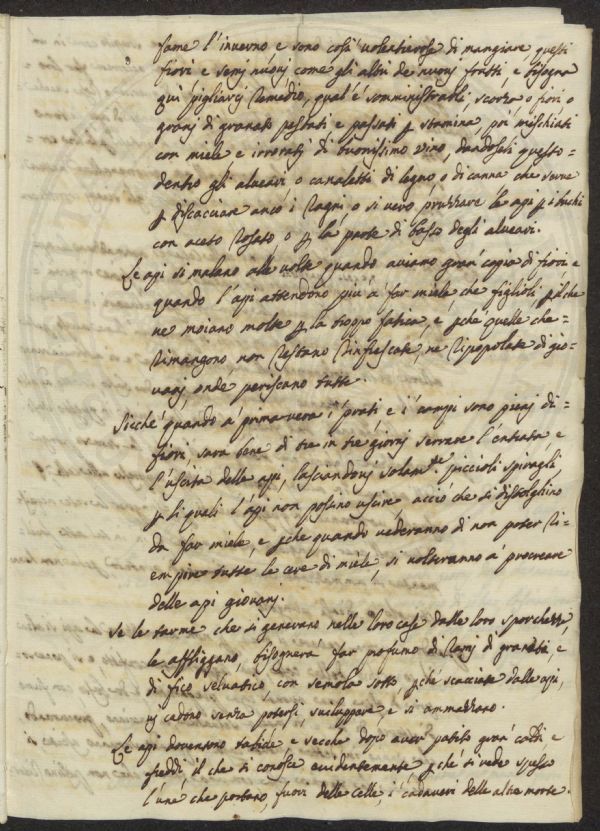 fame l'inuerno e sono così uolentierose di mangiare questi
fiori e semj nuouj come gli altri de nuouj frutti, e bisogna
qui pigliarvj remedio, qual'è somministrarli scorza o fiori o
granj di granato pestati e passati p stamina, poi mischiati
con miele e irroratj di buonissimo uino, dandoseli questo=
dentro gli alueari, o canaletti di legno o di canna che serue
p discacciare anco i ragni, o si uero, spruzzare le api p i buchi
con aceto rosato, o p la parte di basso degli alueari.
Le api si malano alle uolte quando auiano gran' copia di fiori e
quando l'api attendono più a far miele che figlioli, p il che
ne moiano molte p la troppo fatica, e pche quelle che=
rimangono non restano rinfrescate, ne ripopolate di gio=
uanj onde periscano tutte.
Sicche quando a prima uera i prati e i campi sono pienj di=
fiori sara bene di tre in tre giornj serrare l'entrata e
l'uscita delle api, lasciandouj solam.te piccioli spiragli,
p li quali l'api non possino uscire, acciò che si distolghino
da far miele, e pche quando uederanno di non poter ri=
empire tutte le cere di miele, si uolteranno a procreare
delle api giouanj.
Se le tarme che si generano nelle loro case dalle loro sporchezze,
le affliggano, bisognerà far profumo di ramj di granati, e
di fico seluatico, con semola sotto, pche scacciate dalle api,
uj cadono senza potersi suiluppare, e si ammazzano.
Le api douentano tabide e secche dopo auer patito gran' caldi e
freddi il che si conosce euidentemente pche si uede spesso
l'una che portano, fuori delle celle, i cadaueri delle altre morte.